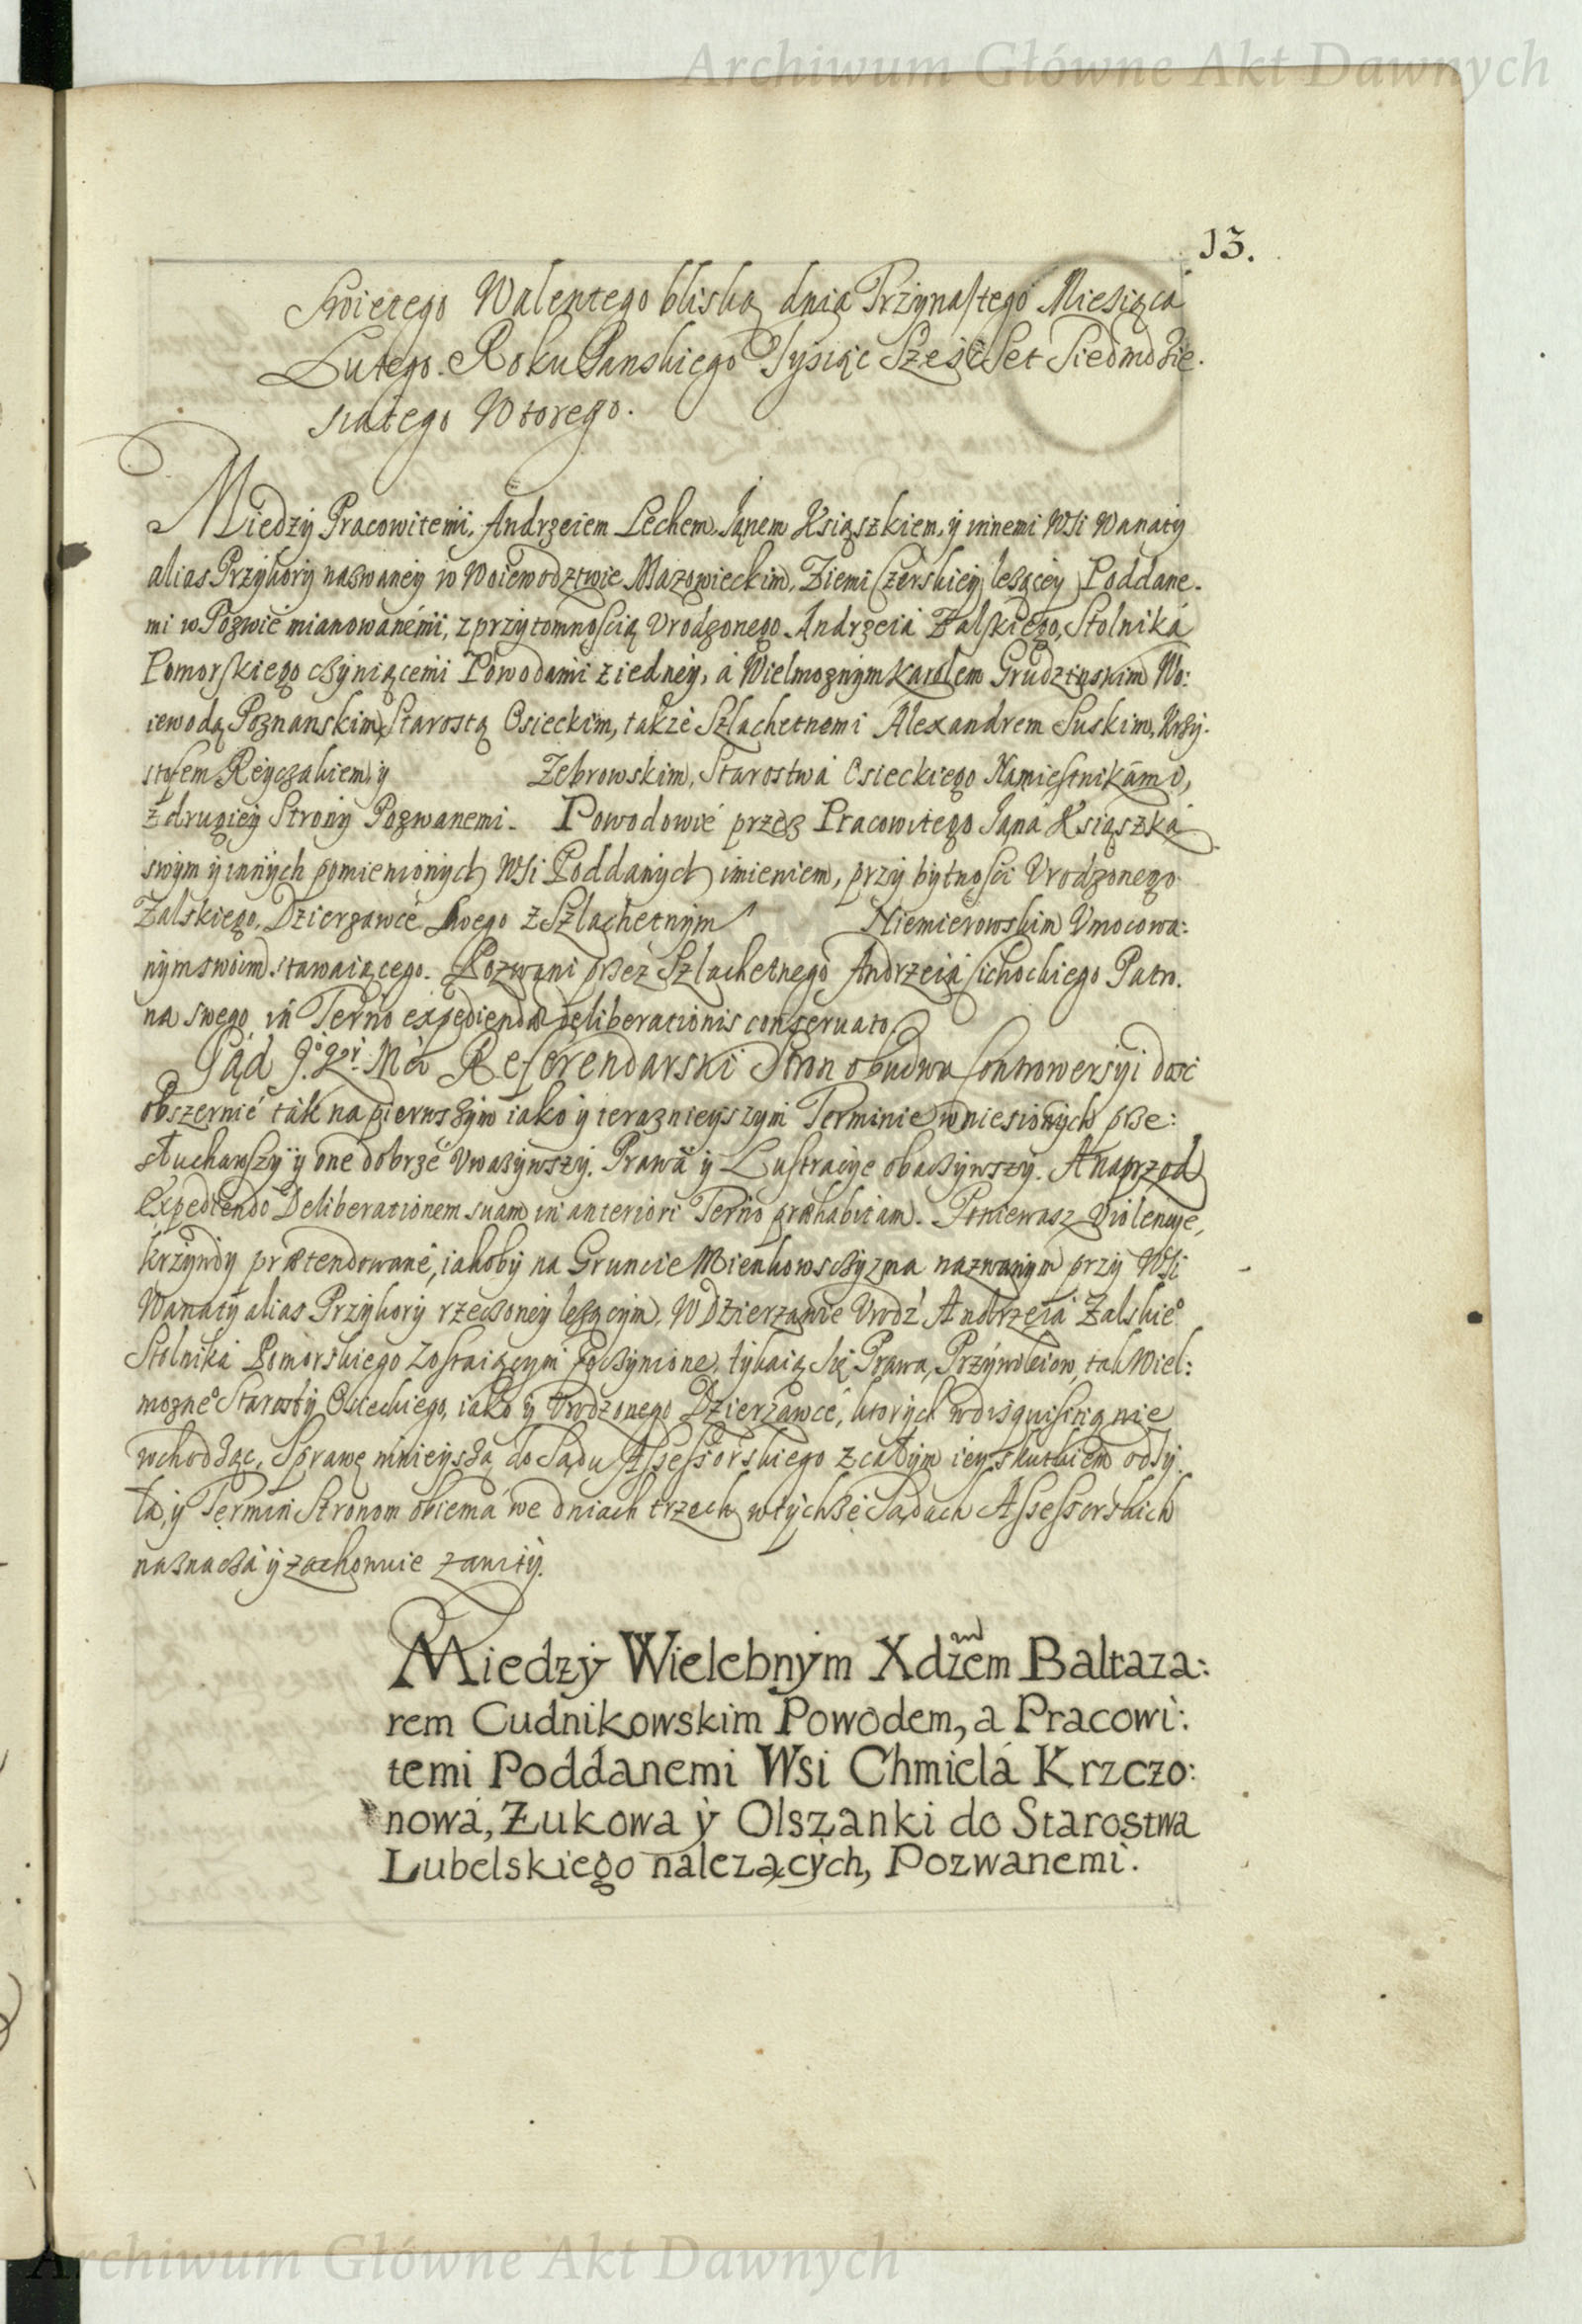 Archiwum Główne Akt Dawnych
13.
Swietego Walentego bliską dnia Trzynastego Miesiąca
Lutego. Roku Panskiego Tysiąc Sześć Set Siedmdzie.
siątego Wtorego.
Miedzy Pracowitemi, Andrzeiem Lechem, Janem Książkiem, y innemi Wsi Wanaty
alias Przykory nazwaney w Woiewodztwie Mazowieckim, Ziemi Czerskiey leżącey Poddane.
mi w Pozwie mianowanemi, z przytomnością Vrodzonego Andrzeia Zalskiego, Stolnika
Pomorskiego czyniącemi Powodami z iedney, á Wielmożnym Karolem Grudzinskim Wo:
iewodą Poznanskim, Starostą Osieckim, także Szlachetnemi Alexandrem Suskim, Krzy.
stofem Reyczakiem, y Zebrowskim, Starostwá Osieckiego Namiestnikámi,
z drugiey Strony Pozwanemi. Powodowie przez Pracowitego Jana Książka
swym y innych pomienionych Wsi Poddanych imieniem, przy bytności Vrodzonego
Zalskiego, Dzierzawce Swego z Szlachetnym Niemierowskim Vmocowa:
nym swoim stawaiącego. Pozwani przez Szlachetnego Andrzeia Cichockiego Patro.
na swego in Terno expediendæ deliberationis conseruato.
Sąd Referendarski Stron obudwu Controwersyi dosc
obszernie ták na pierwszym iako y teraznieyszym Terminie wniesionych prze:
słuchawszy y one dobrze Vważywszy. Prawa y Lustracye obaczywszy. A naprzod
Expediendo Deliberationem suam in anteriori Terno præhabitam. Ponieważ Violencye,
krzywdy prætendowane, iakoby na Gruncie Mienkowsczyzna nazwanym przy Wsi
Wanaty alias Przykory rzeczoney leżącym, W Dzierzawie Vrodz Andrzeia Zalskieo
Stolnika Pomorskiego Zostaiącymi Poczynione, tykaią Się Prawa, Przywileiow, tak Wiel:
możneo Starosty Osieckiego, iako y Vrodzonego Dzierzawce, ktorych w disquisicią nie
wchodząc, Sprawę ninieyszą do Sądu Assessorskiego z całym iey skutkiem odsy.
ła, y Termin Stronom obiema we dniach trzech w tychże Sądach Assessorskich
naznacza y zachowuie zawity.
Miedzy Wielebnym Xdzem Baltaza:
rem Cudnikowskim Powodem, a Pracowi:
temi Poddanemi Wsi Chmielá Krzczo:
nowá, Zukowa y Olszanki do Starostwa
Lubelskiego nalezących, Pozwanemi.
Archiwum Główne Akt Dawnych